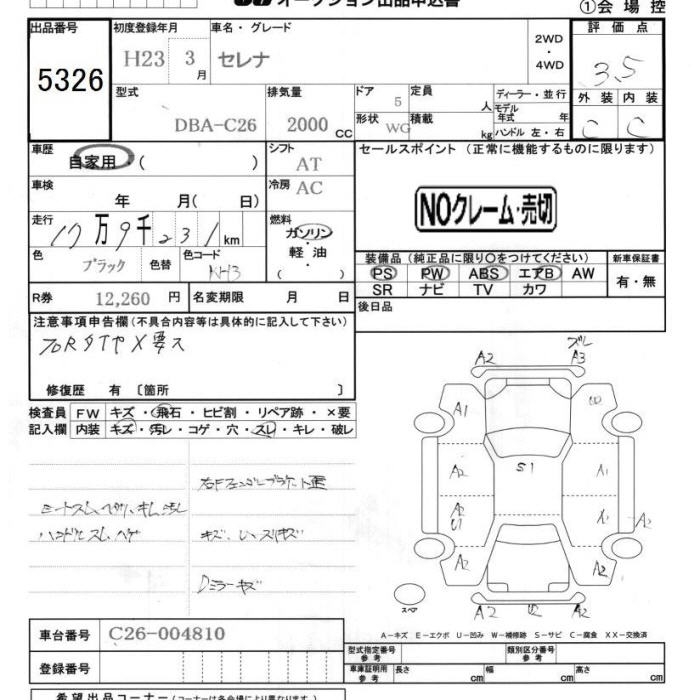 オークション出品申込書
①会場控
出品番号 初度登録年月 車名・グレード 2WD・4WD 評価点
5326 H23 3月 セレナ 3.5
型式 排気量 ドア 定員 ディーラー・並行 外装 内装
DBA-C26 2000CC 5 人 モデル年式 年 C C
形状 WG 積載 kg ハンドル 左・右
車歴 自家用・( ) シフト AT セールスポイント (正常に機能するものに限ります)
車検 年 月( 日) 冷房 AC
NOクレーム・売切
走行 17万9千231km 燃料 ガソリン・軽・油 ( )
色 ブラック 色替 色コード KH3
装備品 (純正品に限り○をつけてください) 新車保証書
PS PW ABS エアB AW 有・無
SR ナビ TV カワ
R券 12,260円 名変期限 月 日
後日品
注意事項申告欄(不具合内容等は具体的に記入して下さい)
修復歴 有 〔箇所 〕
検査員 FW キズ・飛石・ヒビ割・リペア跡・×要
記入欄 内装 キズ・汚レ・コゲ・穴・スレ・キレ・破レ
Dミラーキズ
A2 ズレ A3
A1
A2 S1 A1
A2 U1 A2
A2 A2
スペア A2 U2 A2
A-キズ E-エクボ U-凹み W-補修跡 S-サビ C-腐食 XX-交換済
車台番号 C26-004810
登録番号
型式指定番号 参考 類別区分番号 参考
車庫証明用 参考 長さ cm 幅 cm 高さ cm
希望出品コーナー(コーナーは各会場により異なります。)